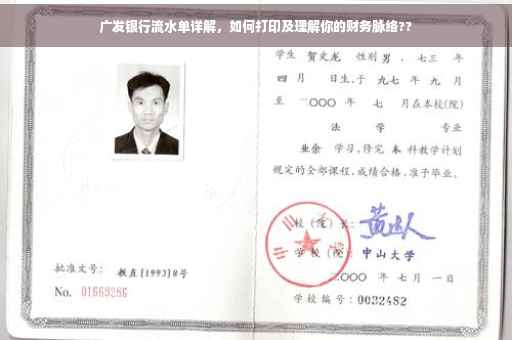 广发银行流水单详解，如何打印及理解你的财务脉络??
学生 贺文龙 性别 男，七三 年
四 月 日生，于 九七 年 九 月
至 二〇〇〇 年 七 月在本校(院)
法 学 专业
业余 学习，修完 本 科教学计划
规定的全部课程，成绩合格，准予毕业。
校(院)长:
学校(院): 中山大学
二〇〇〇 年 七 月 一 日
批准文号: 教直[1993]8号
No. 01669286
学校编号: 0032482